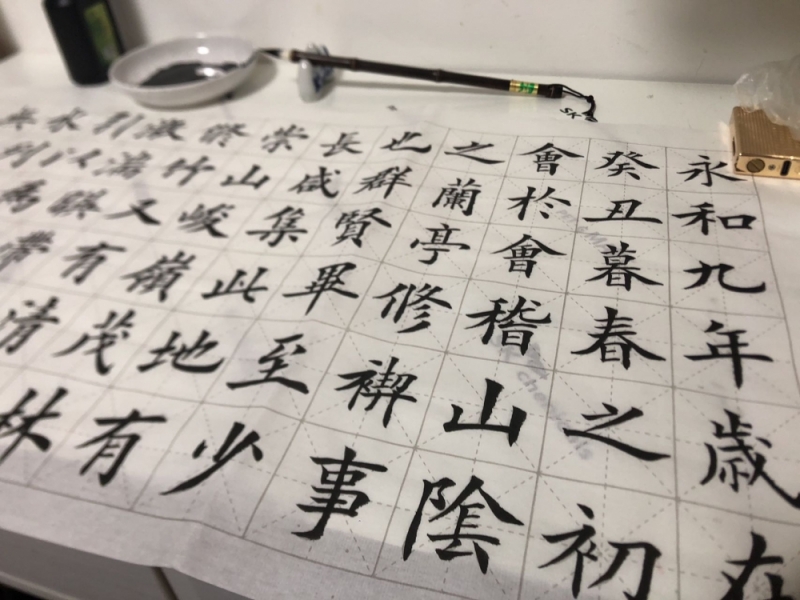 永和九年歲在
癸丑暮春之初
會於會稽山陰
之蘭亭修禊事
也群賢畢至少
長咸集此地有
崇山峻嶺茂林
脩竹又有清
激湍暎帶
引以為
水列